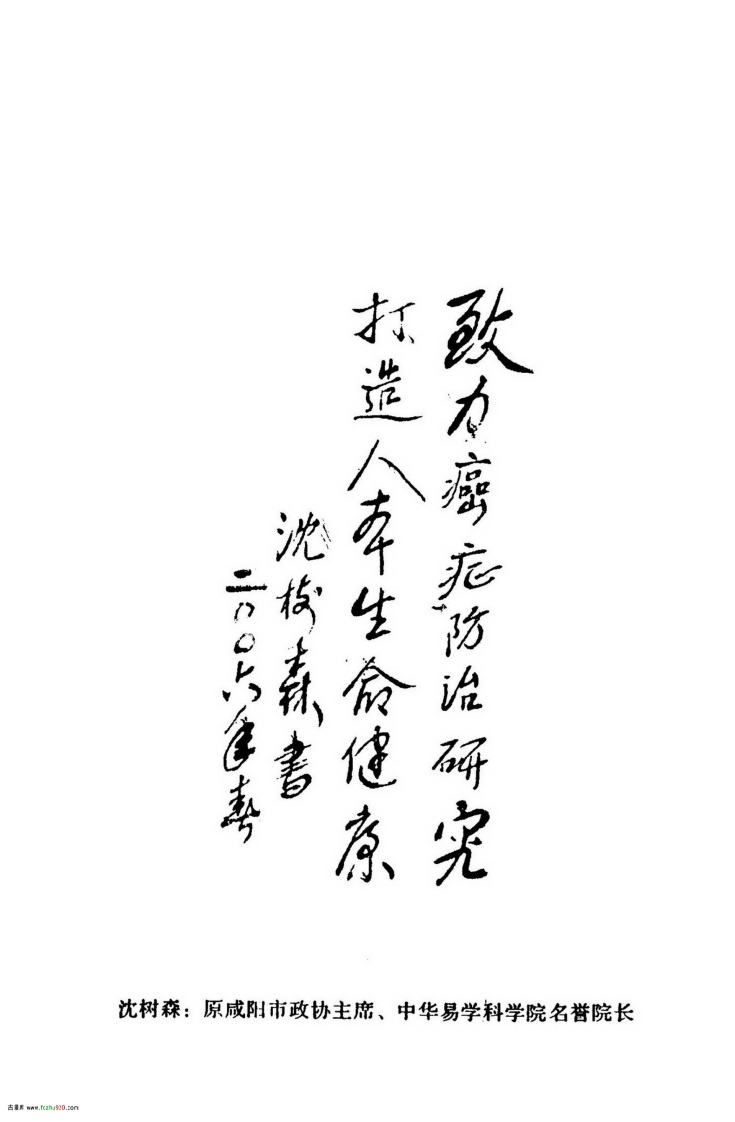 致力癌症防治研究
打造人本生命健康
沈树森书
二〇〇六年春
沈树森：原咸阳市政协主席、中华易学科学院名誉院长
古籍库 www.fozhu920.com